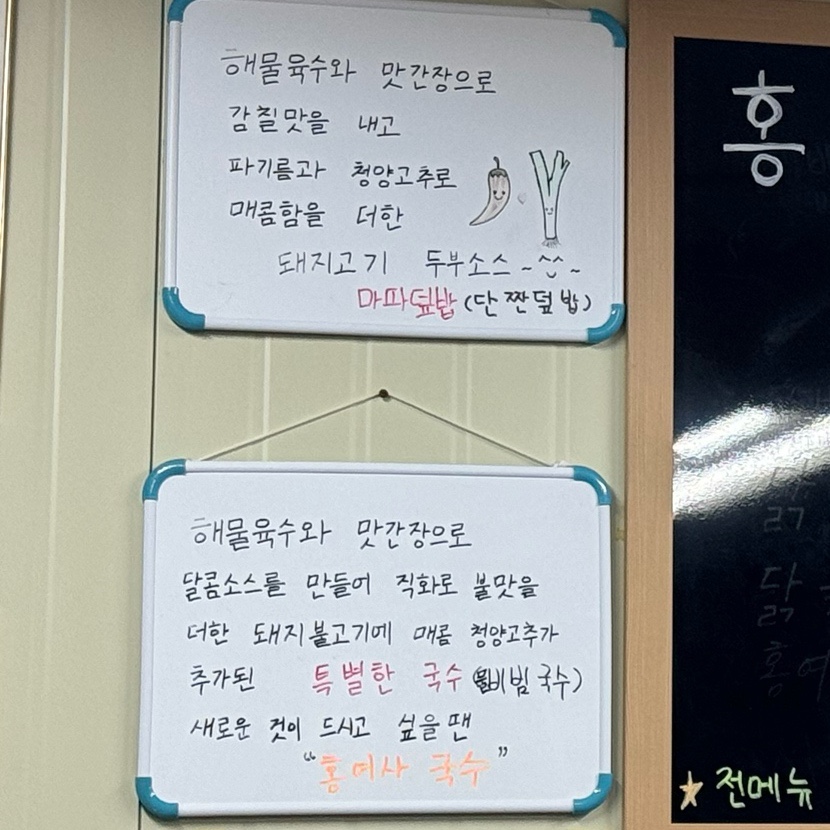 해물육수와 맛간장으로
감칠맛을 내고
파기름과 청양고추로
매콤함을 더한
돼지고기 두부소스~^^~
마파덮밥 (단짠덮밥)
해물육수와 맛간장으로
달콤소스를 만들어 직화로 불맛을
더한 돼지불고기에 매콤 청양고추가
추가된 특별한 국수 (비빔국수)
새로운 것이 드시고 싶을땐
"홍여사 국수"
홍
닭
홍여
☆ 전메뉴